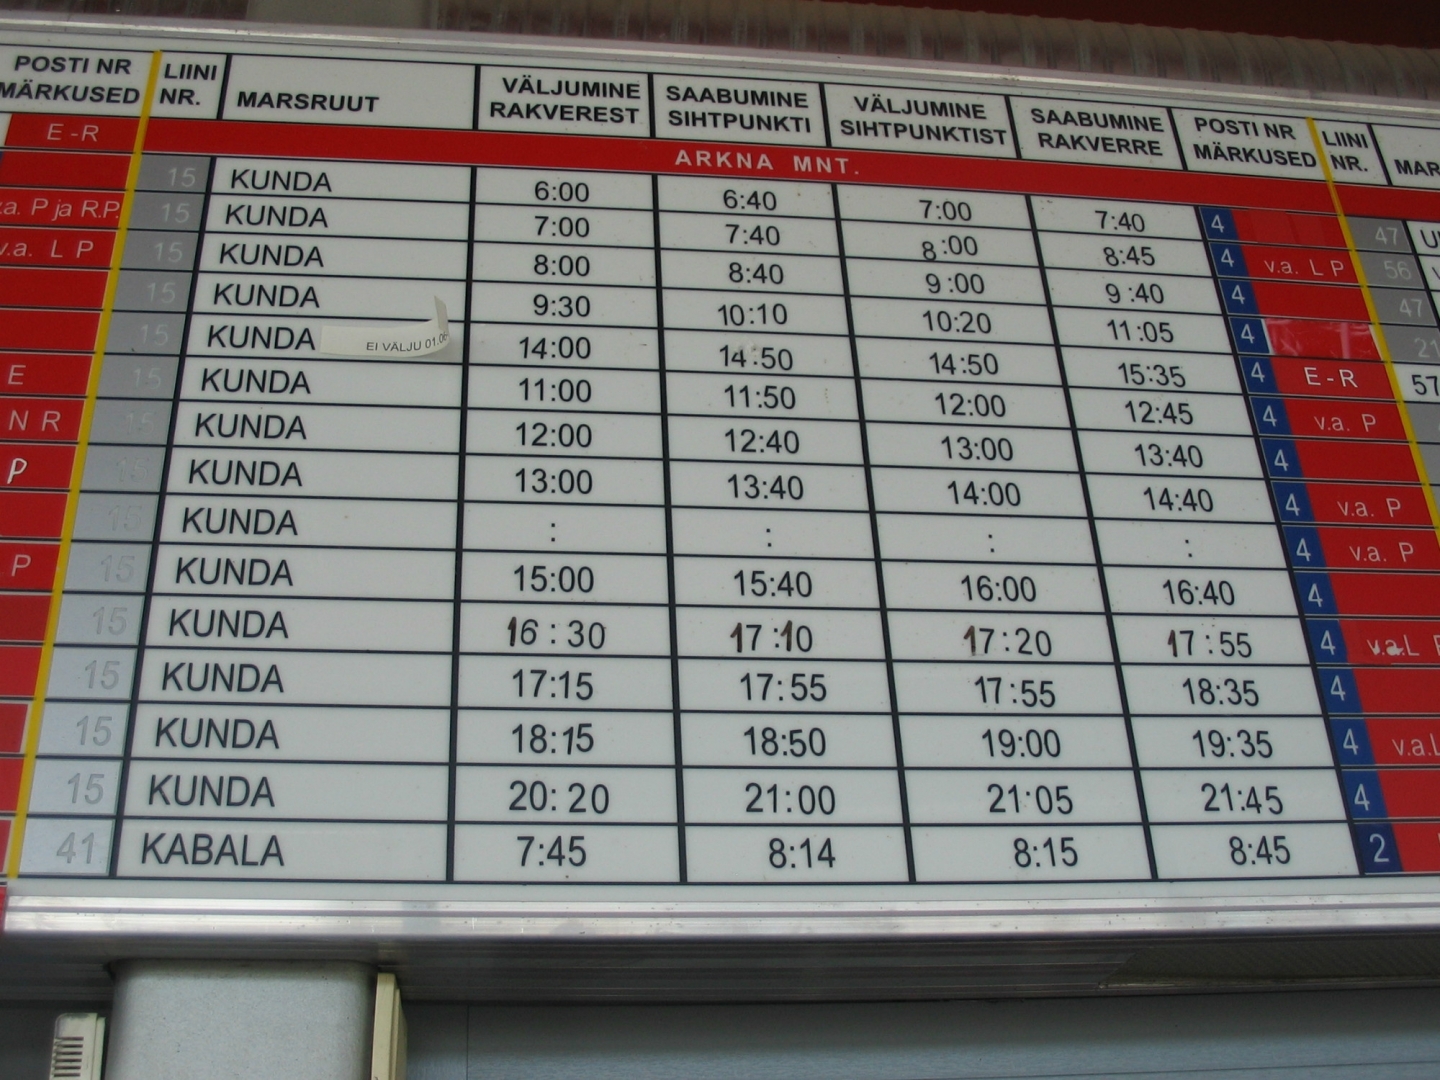 POSTI NR MÄRKUSED LIINI NR. MARSRUUT VÄLJUMINE RAKVEREST SAABUMINE SIHTPUNKTI VÄLJUMINE SIHTPUNKTIST SAABUMINE RAKVERRE POSTI NR MÄRKUSED LIINI NR.
E-R ARKNA MNT.
15 KUNDA 6:00 6:40 7:00 7:40 4 47
P ja R.P. 15 KUNDA 7:00 7:40 8:00 8:45 4 v.a. L P 56
v.a. L P 15 KUNDA 8:00 8:40 9:00 9:40 4 47
15 KUNDA 9:30 10:10 10:20 11:05 4 21
15 KUNDA EI VÄLJU 14:00 14:50 14:50 15:35 4 E-R 57
E 15 KUNDA 11:00 11:50 12:00 12:45 4 v.a. P
N R 15 KUNDA 12:00 12:40 13:00 13:40 4
P 15 KUNDA 13:00 13:40 14:00 14:40 4 v.a. P
15 KUNDA : : : : 4 v.a. P
P 15 KUNDA 15:00 15:40 16:00 16:40 4
15 KUNDA 16:30 17:10 17:20 17:55 4 v.a.L
15 KUNDA 17:15 17:55 17:55 18:35 4
15 KUNDA 18:15 18:50 19:00 19:35 4 v.a.L
15 KUNDA 20:20 21:00 21:05 21:45 4
41 KABALA 7:45 8:14 8:15 8:45 2